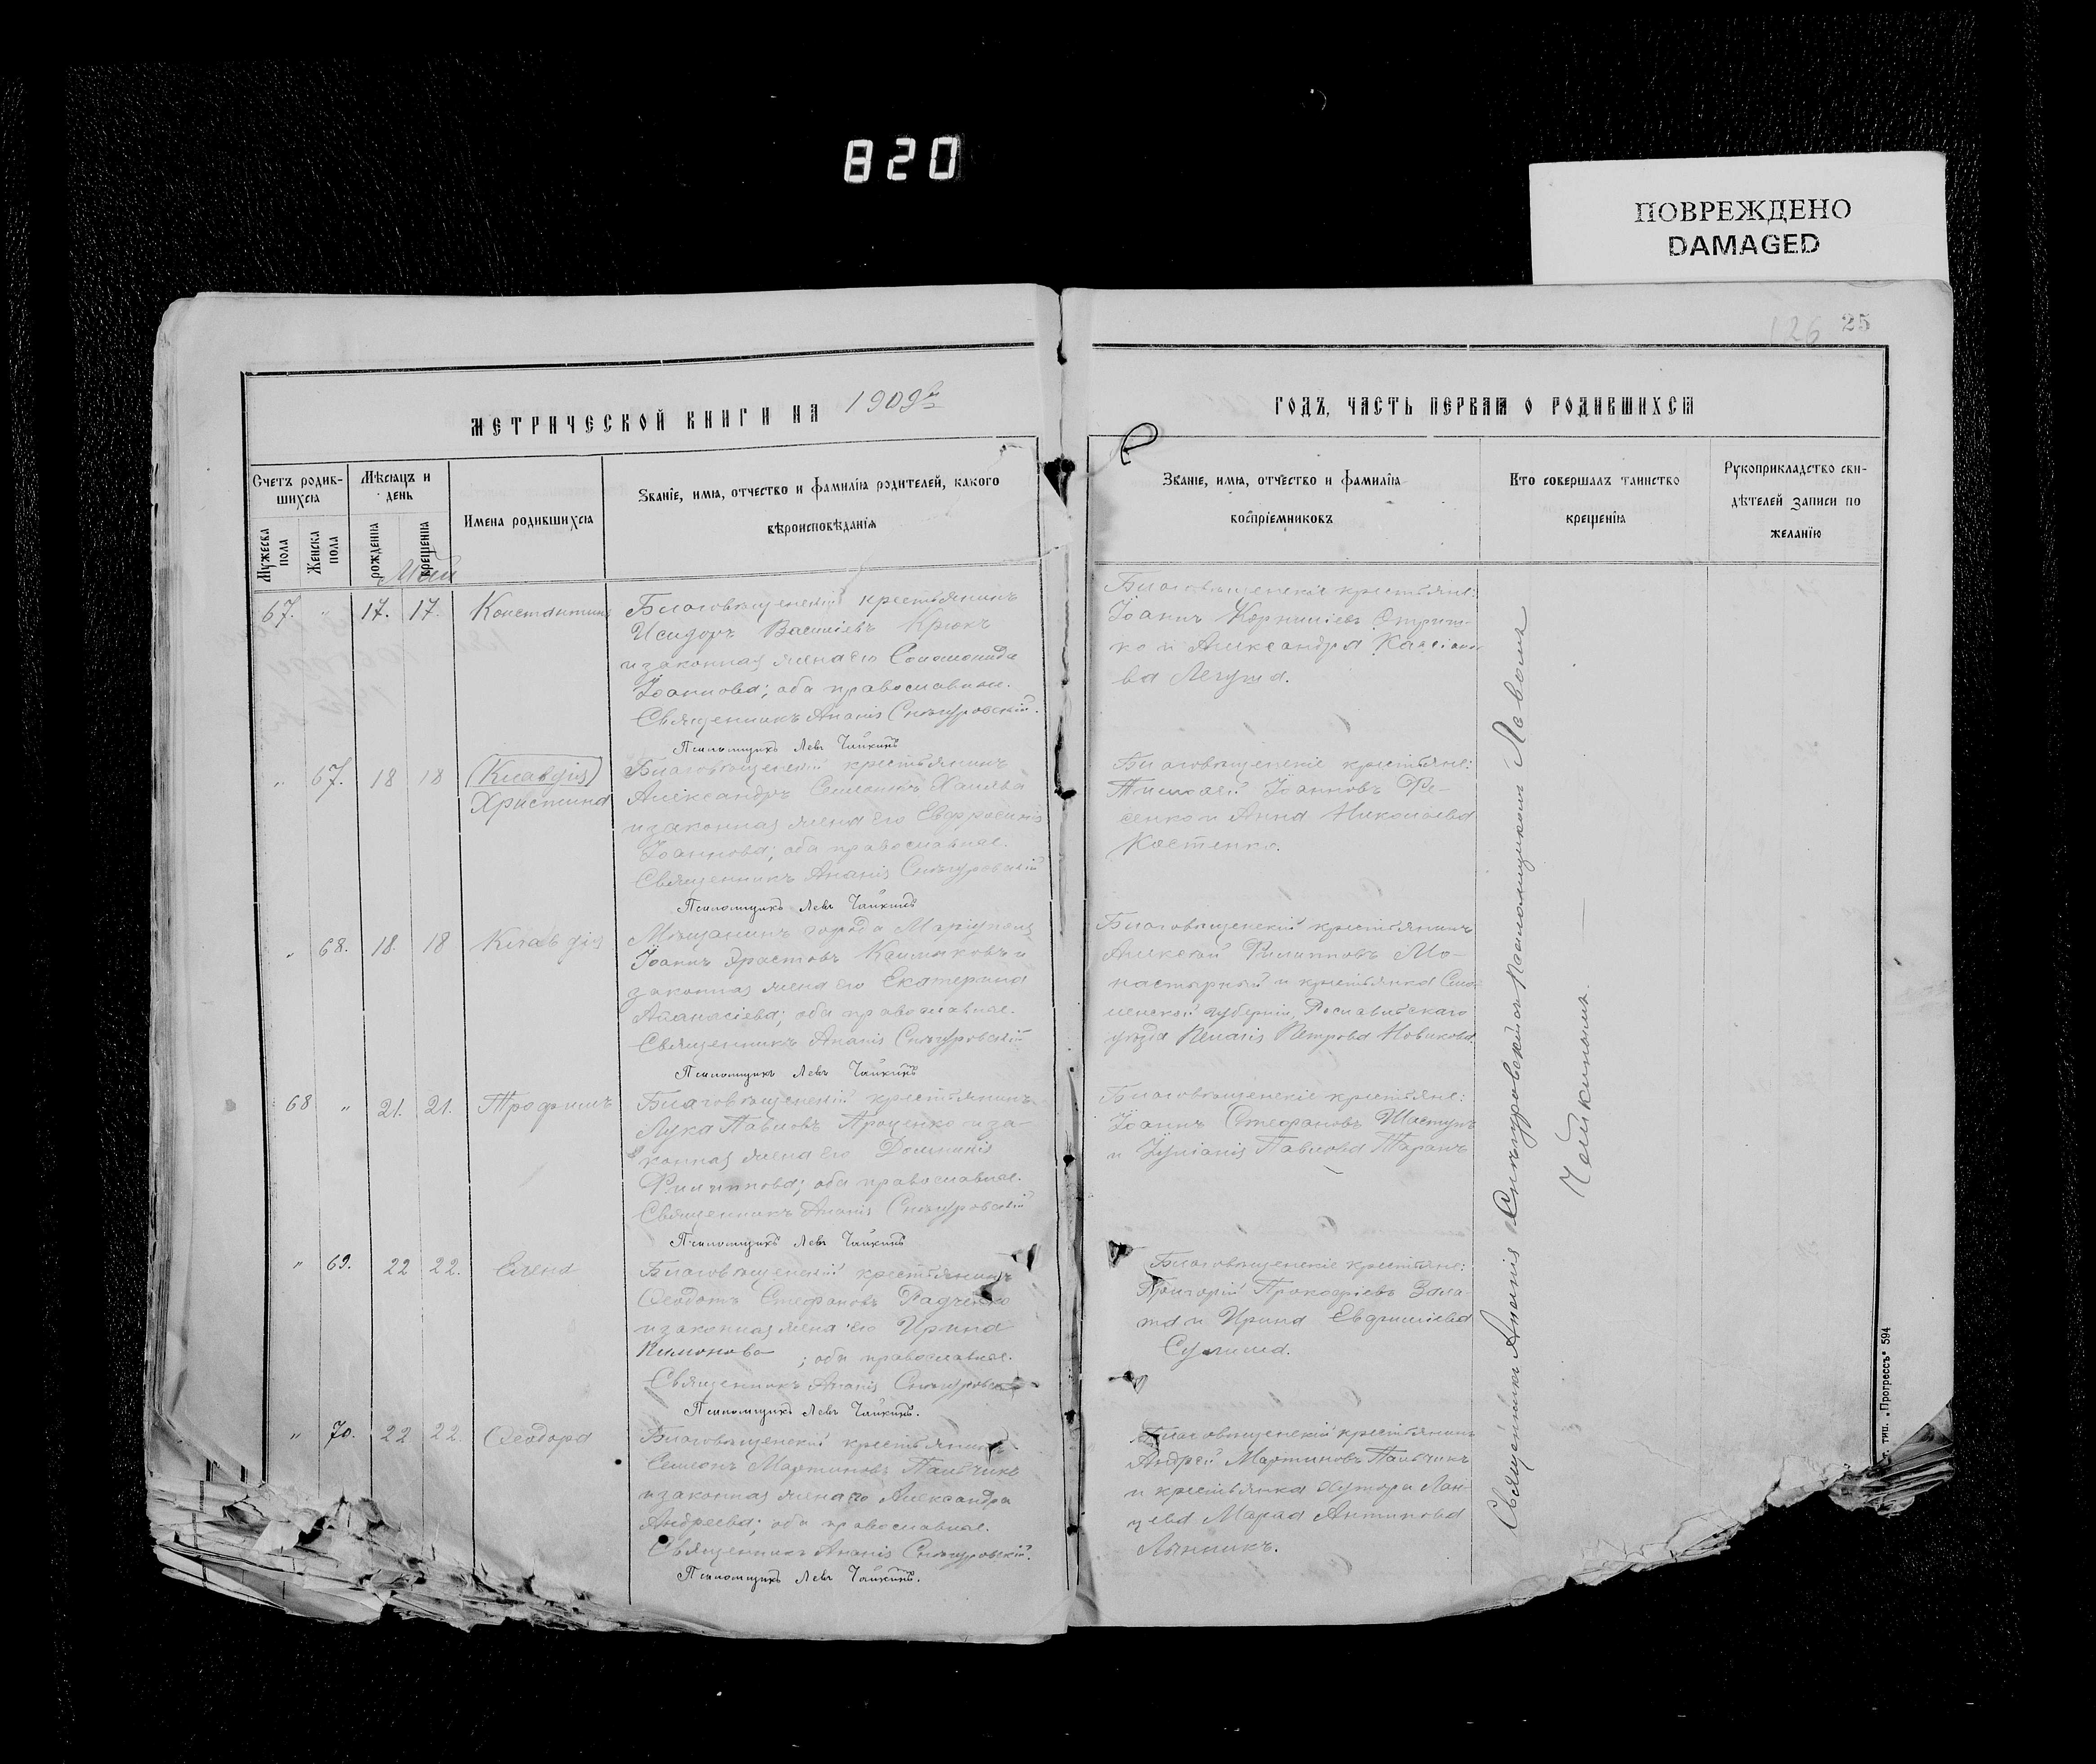 820
ПОВРЕЖДЕНО
DAMAGED
126 25
МЕТРИЧЕСКОЙ КНИГИ НА 1909й
ГОДЪ, ЧАСТЬ ПЕРВАЯ О РОДИВШИХСЯ
Счетъ родив-
шихся
Мѣсяцъ и
день
Мужеска
пола
Женска
пола
рожденія
крещенія
Имена родившихся
Званіе, имя, отчество и фамилія родителей, какого
вѣроисповѣданія
Званіе, имя, отчество и фамилія
воспріемниковъ
Кто совершалъ таинство
крещенія
Рукоприкладство сви-
дѣтелей записи по
желанію
Май
67. " 17. 17. Константинъ
Благовѣщенскій крестьянинъ
Исидоръ Васильевъ Крюкъ
и законная жена его Соломонида
Іоаннова; оба православные.
Священникъ Ананія Снѣгуровскій.
Псаломщикъ Левъ Чайкинъ
Благовѣщенскіе крестьяне:
Іоаннъ Корниліевъ
ко и Александра Кассіано
ва Легуша.
" 67. 18 18 (Клавдія)
Христина
Благовѣщенскій крестьянинъ
Александръ Халява
и законная жена его Евфросинія
Іоаннова; оба православные.
Священникъ Ананія Снѣгуровскій
Псаломщикъ Левъ Чайкинъ
Благовѣщенскіе крестьяне:
Тимофей Іоанновъ Фе-
сенко и Анна Николаева
Костенко.
" 68. 18. 18 Клавдія
Мѣщанинъ города Маріуполя
Іоаннъ Эрастовъ Калмыковъ и
законная жена его Екатерина
Аѳанасіева; оба православные.
Священникъ Ананія Снѣгуровскій
Псаломщикъ Левъ Чайкинъ
Благовѣщенскій крестьянинъ
Алексѣй Филипповъ Мо-
настырный и крестьянка Смо-
ленской губерніи, Рославльскаго
уѣзда Пелагія Петрова Новикова.
68 " 21. 21. Трофимъ
Благовѣщенскій крестьянинъ
Лука Павловъ Проценко и за-
конная жена его Домникія
Филиппова; оба православные.
Священникъ Ананія Снѣгуровскій
Псаломщикъ Левъ Чайкинъ
Благовѣщенскіе крестьяне:
Іоаннъ Стефановъ Шастунъ
и Іуліанія Павлова Таранъ
" 69. 22 22. Елена
Благовѣщенскій крестьянинъ
Ѳеодотъ Стефановъ Радченко
и законная жена его Ирина
Климонова ; оба православные.
Священникъ Ананія Снѣгуровскій
Псаломщикъ Левъ Чайкинъ.
Благовѣщенскіе крестьяне:
Григорій Прокофіевъ
та и Ирина Евфиміева
" 70. 22 22. Ѳеодора
Благовѣщенскій крестьянинъ
Симеонъ Мартиновъ Пальчикъ
и законная жена его Александра
Андреева; оба православные.
Священникъ Ананія Снѣгуровскій.
Псаломщикъ Левъ Чайкинъ.
Благовѣщенскій крестьянинъ
Андрей Мартиновъ Пальчикъ
и крестьянка хутора Лан-
цева Марѳа Антипова
Линникъ.
Священникъ Ананія Снѣгуровскій съ Псаломщикомъ Львомъ
Чайкинымъ.
тип. „Прогрессъ" 594